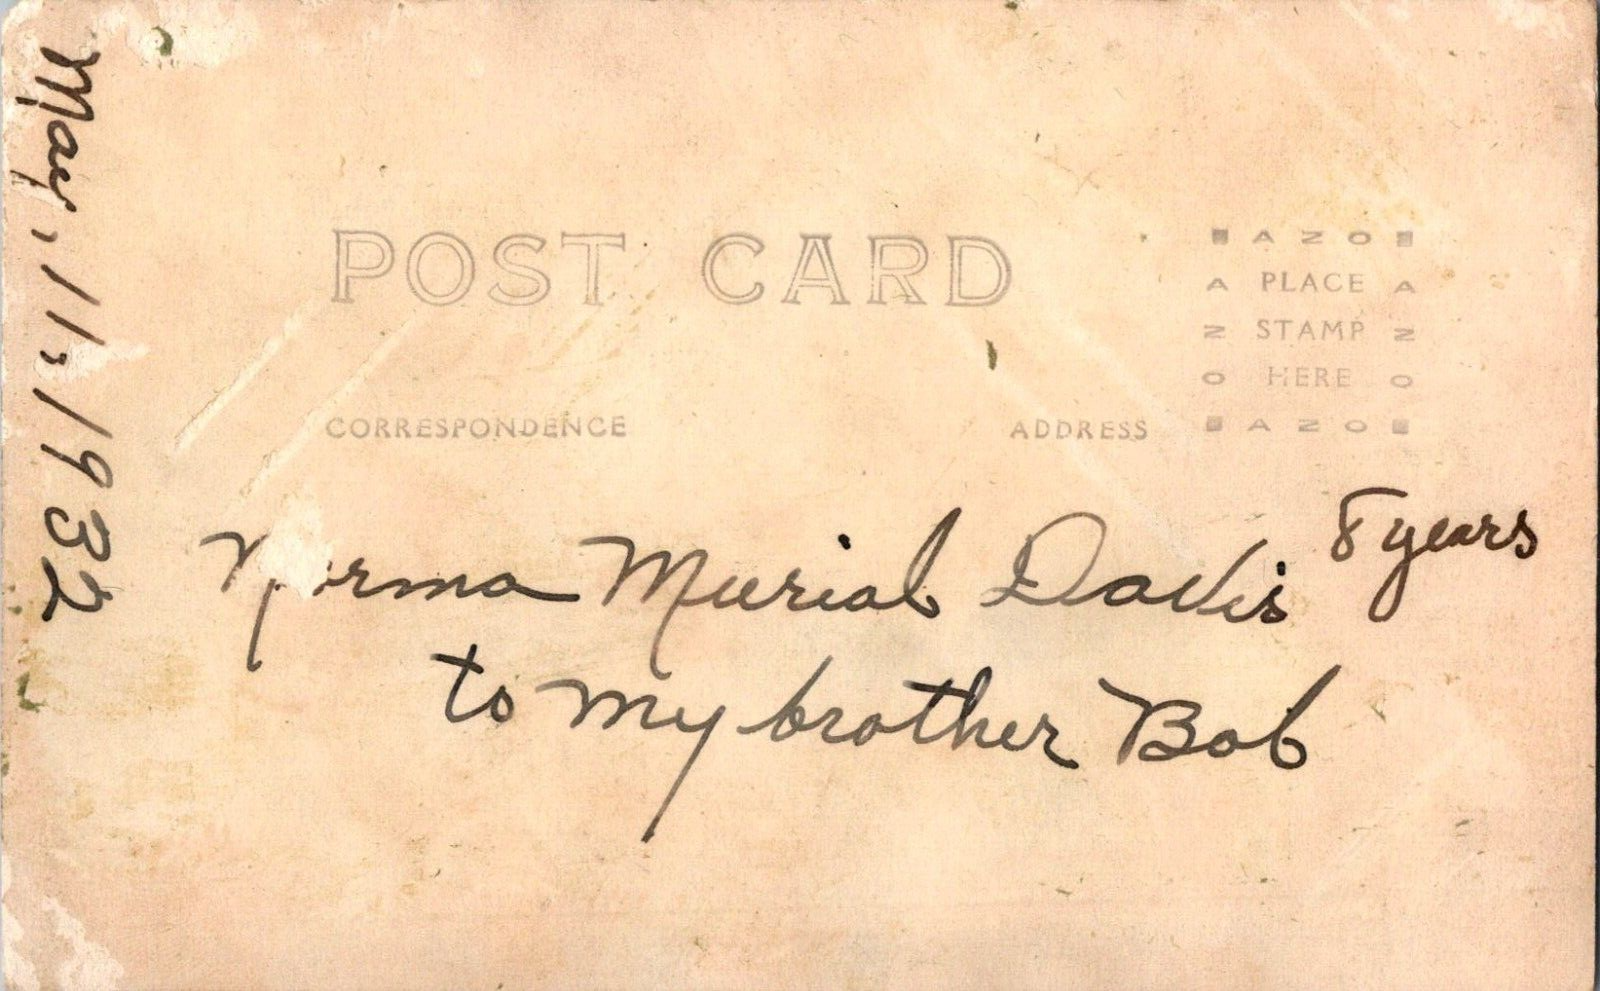 May, 11, 1932
POST CARD
AZO
A PLACE A
Z STAMP Z
O HERE O
AZO
CORRESPONDENCE
ADDRESS
Norma Murial Davis 8 years
to my brother Bob